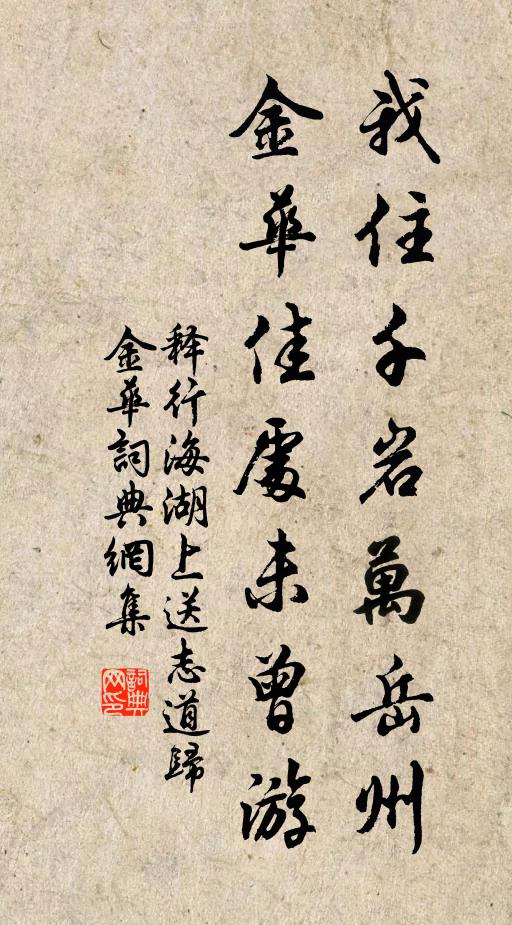 我住千岩萬岳州
金華佳處未曾游
释行海湖上送志道歸
金華詞典網集
詞典网印